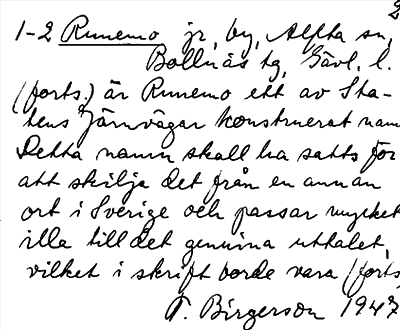 2
1-2 Runemo jr, by, Alfta sn,
Bollnäs tg, Gävl. l.
(forts.) är Runemo ett av Sta-
tens Järnvägar konstruerat namn
Detta namn skall ha satts för
att skilja det från en annan
ort i Sverige och passar mycket
illa till det genuina uttalet,
vilket i skrift borde vara (forts
T. Birgerson 1947